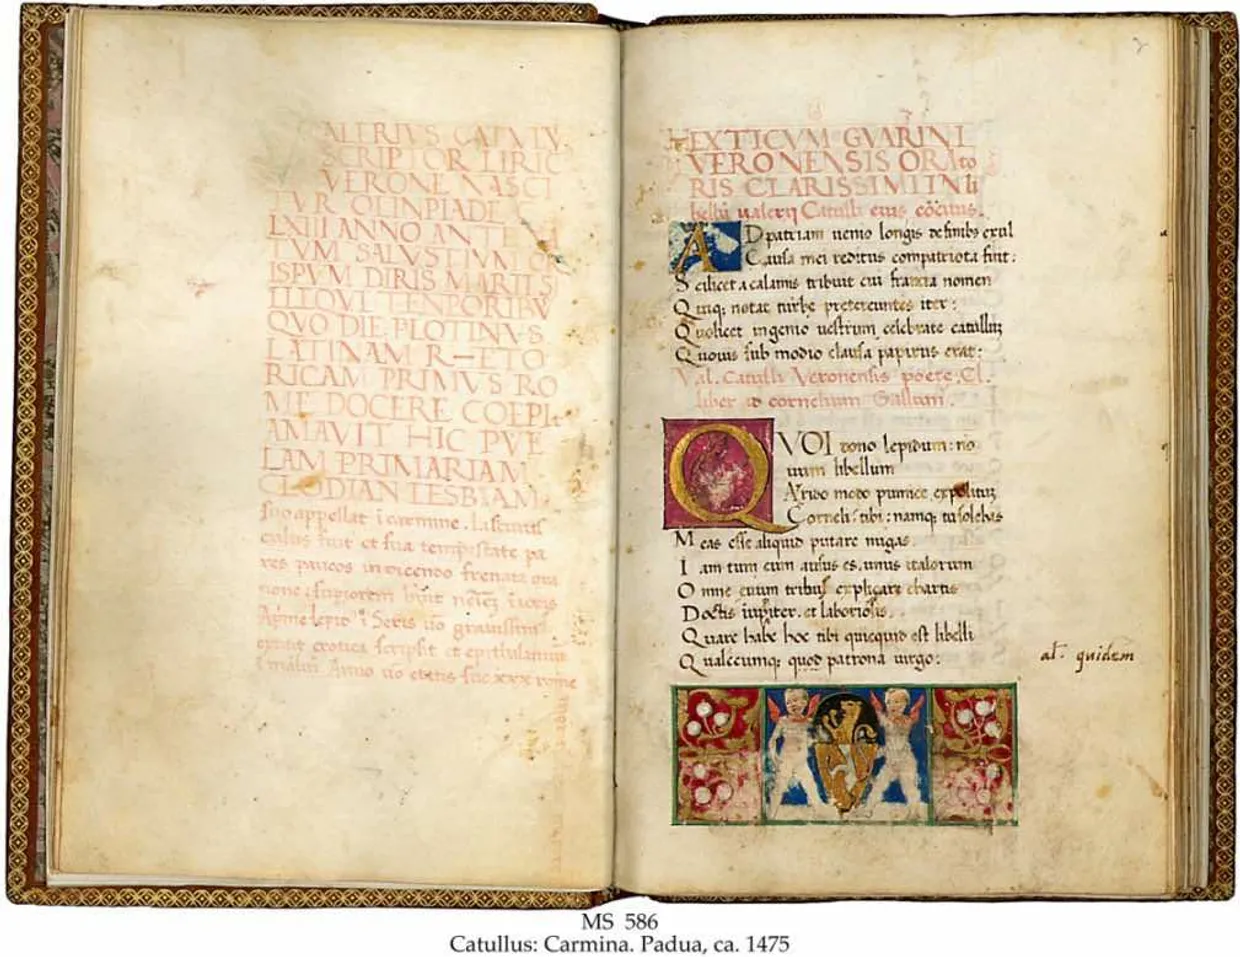 ALERIVS CATVLV
SCRIPTOR LIRIC
VERONE NASCI
TVR OLINPIADE C
LXIII ANNO ANTE
TVM SALVSTIVM
ISPVM DIRIS MARII S
ILLQVE TENPORIBV
QVO DIE PLOTINVS
LATINAM R—ETO
RICAM PRIMVS RO
ME DOCERE COEPI
AMAVIT HIC PVE
LAM PRIMARIAM
CLODIAN LESBIAM
suo appellat i carmine. Lasciuus
culus fuit et sua tempestate pa
res paucos in dicendo frenata ora
grauissim
erotica scripsit et epithalamia
Anno etatis sue xxx rome
HEXTICVM GVARINI
VERONENSIS ORAto
RIS CLARISSIMI IN li
bellū valerij Catulli eius
AD patriam uenio longis de finibs exul
Causa mei reditus compatriota fuit:
Scilicet a calamis tribuit cui francia nomen
Quiq; notat turbe pretereuntes iter:
Quo licet ingenio uestrum celebrate catullū
Quouis sub modio clausa papirus erat:
Val. Catulli Veronensis poete. Cl.
liber ad cornelium Gallum.
QVOI dono lepidum: no
uum libellum
Arido modo pumice expolitū
Corneli: tibi: namq; tu solebas
Meas esse aliquid putare nugas.
Iam tum cum ausus es. unus italorum
Omne euum tribus explicare chartis
Doctis iupiter. et laboriosis.
Quare habe hoc tibi quicquid est libelli
Qualecumq; quod patrona uirgo:
al: quidem
MS 586
Catullus: Carmina. Padua, ca. 1475